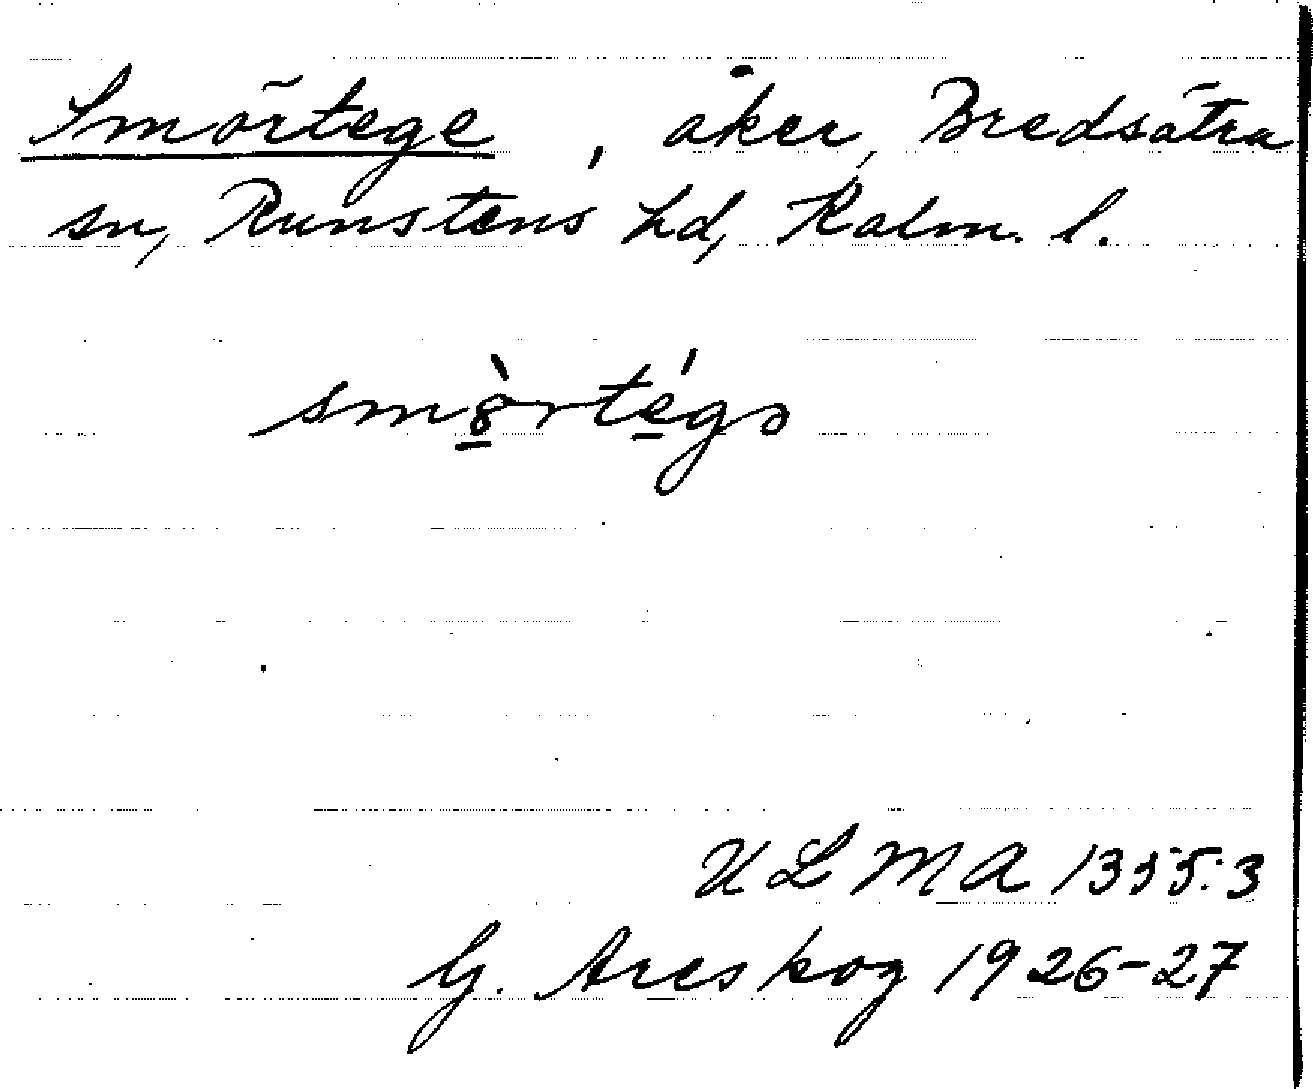 Smörtege, åker, Bredsätra
sn, Runstens hd, Kalm. l.
smö̀rtégə
ULMA 1355:3
G. Areskog 1926-27